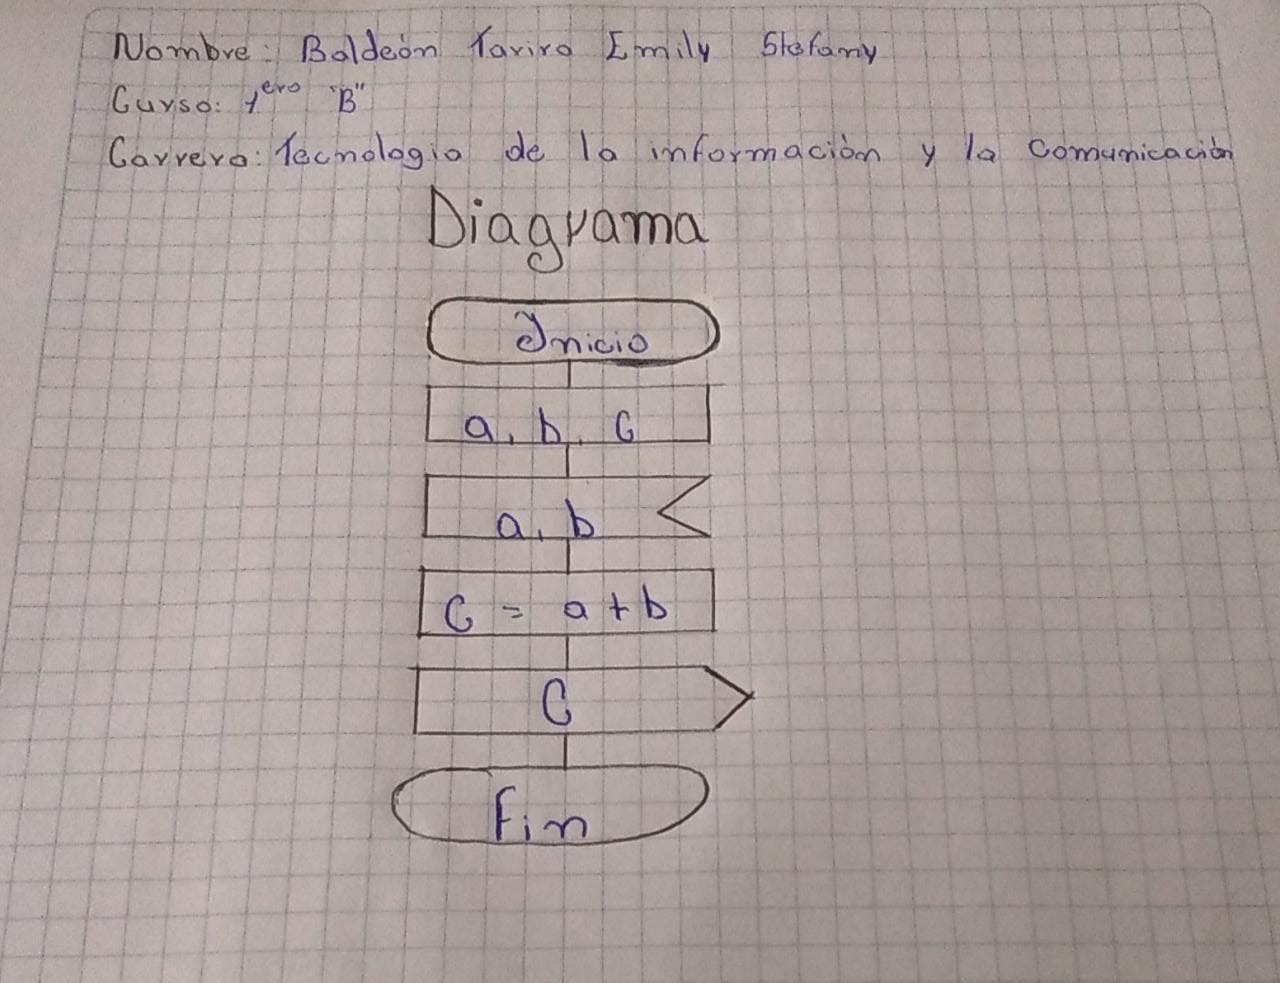 Nombre: Baldeón Tavira Emily Stefany
Curso: 1ero "B"
Carrera: Tecnologia de la información y la Comunicación
Diagrama
Inicio
a, b, C
a, b
C = a + b
C
Fin